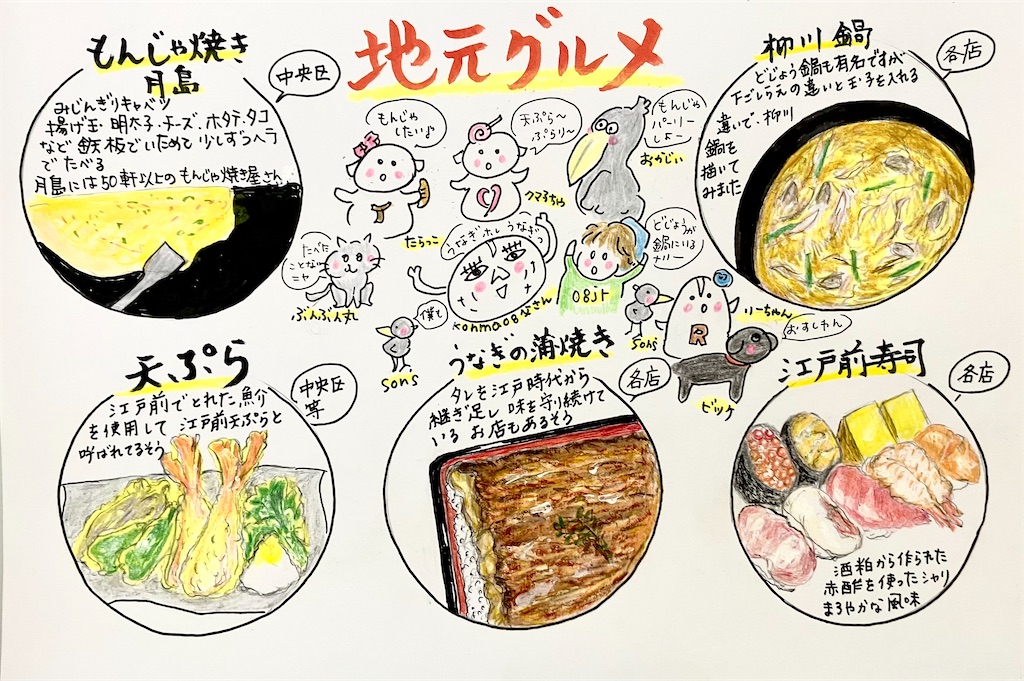 地元グルメ
もんじゃ焼き
月島
中央区
みじんぎりキャベツ
揚げ玉・明太子・チーズ、ホタテ、タコ
など鉄板でいためて少しずつヘラ
でたべる
月島には50軒以上のもんじゃ焼き屋さん
もんじゃ
したい♪
天ぷら〜
ぷらリ〜
もんじゃ
パーリー
しよ〜
おかじい
クマ子ちゃ
たらっこ
うなぎホレうなぎっ
どじょうが
鍋にいる
ナリー
たべた
ことない
ニャ
ぶんぶん丸
僕も
sons
konma08父さん
08jr
sons
りーちゃん
R
おすしわん
ビッケ
柳川鍋
各店
どじょう鍋も有名ですが
下ごしらえの違いと玉子を入れる
違いで、柳川
鍋を
描いて
みました
天ぷら
中央区
等
江戸前でとれた魚介
を使用して 江戸前天ぷらと
呼ばれてるそう
うなぎの蒲焼き
各店
タレを江戸時代から
継ぎ足し 味を守り続けて
いる お店もあるそう
江戸前寿司
各店
酒粕から作られた
赤酢を使ったシャリ
まろやかな風味